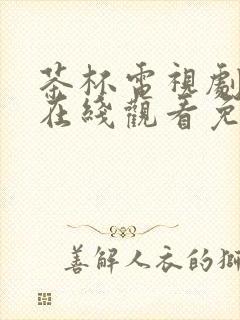 茶杯電視劇
在綫觀看免
善解人衣的獅